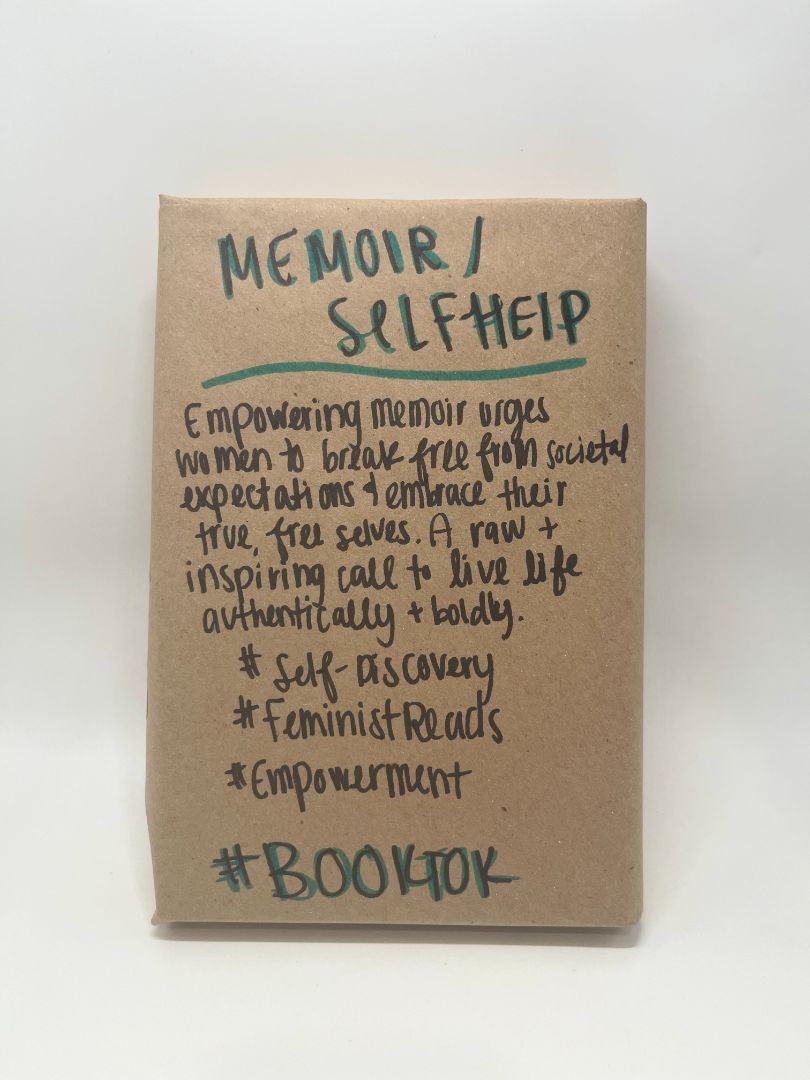 MEMOIR /
SELF HELP
Empowering memoir urges
women to break free from societal
expectations & embrace their
true, free selves. A raw +
inspiring call to live life
authentically + boldly.
# Self-Discovery
#FeministReads
#Empowerment
#BOOKTOK